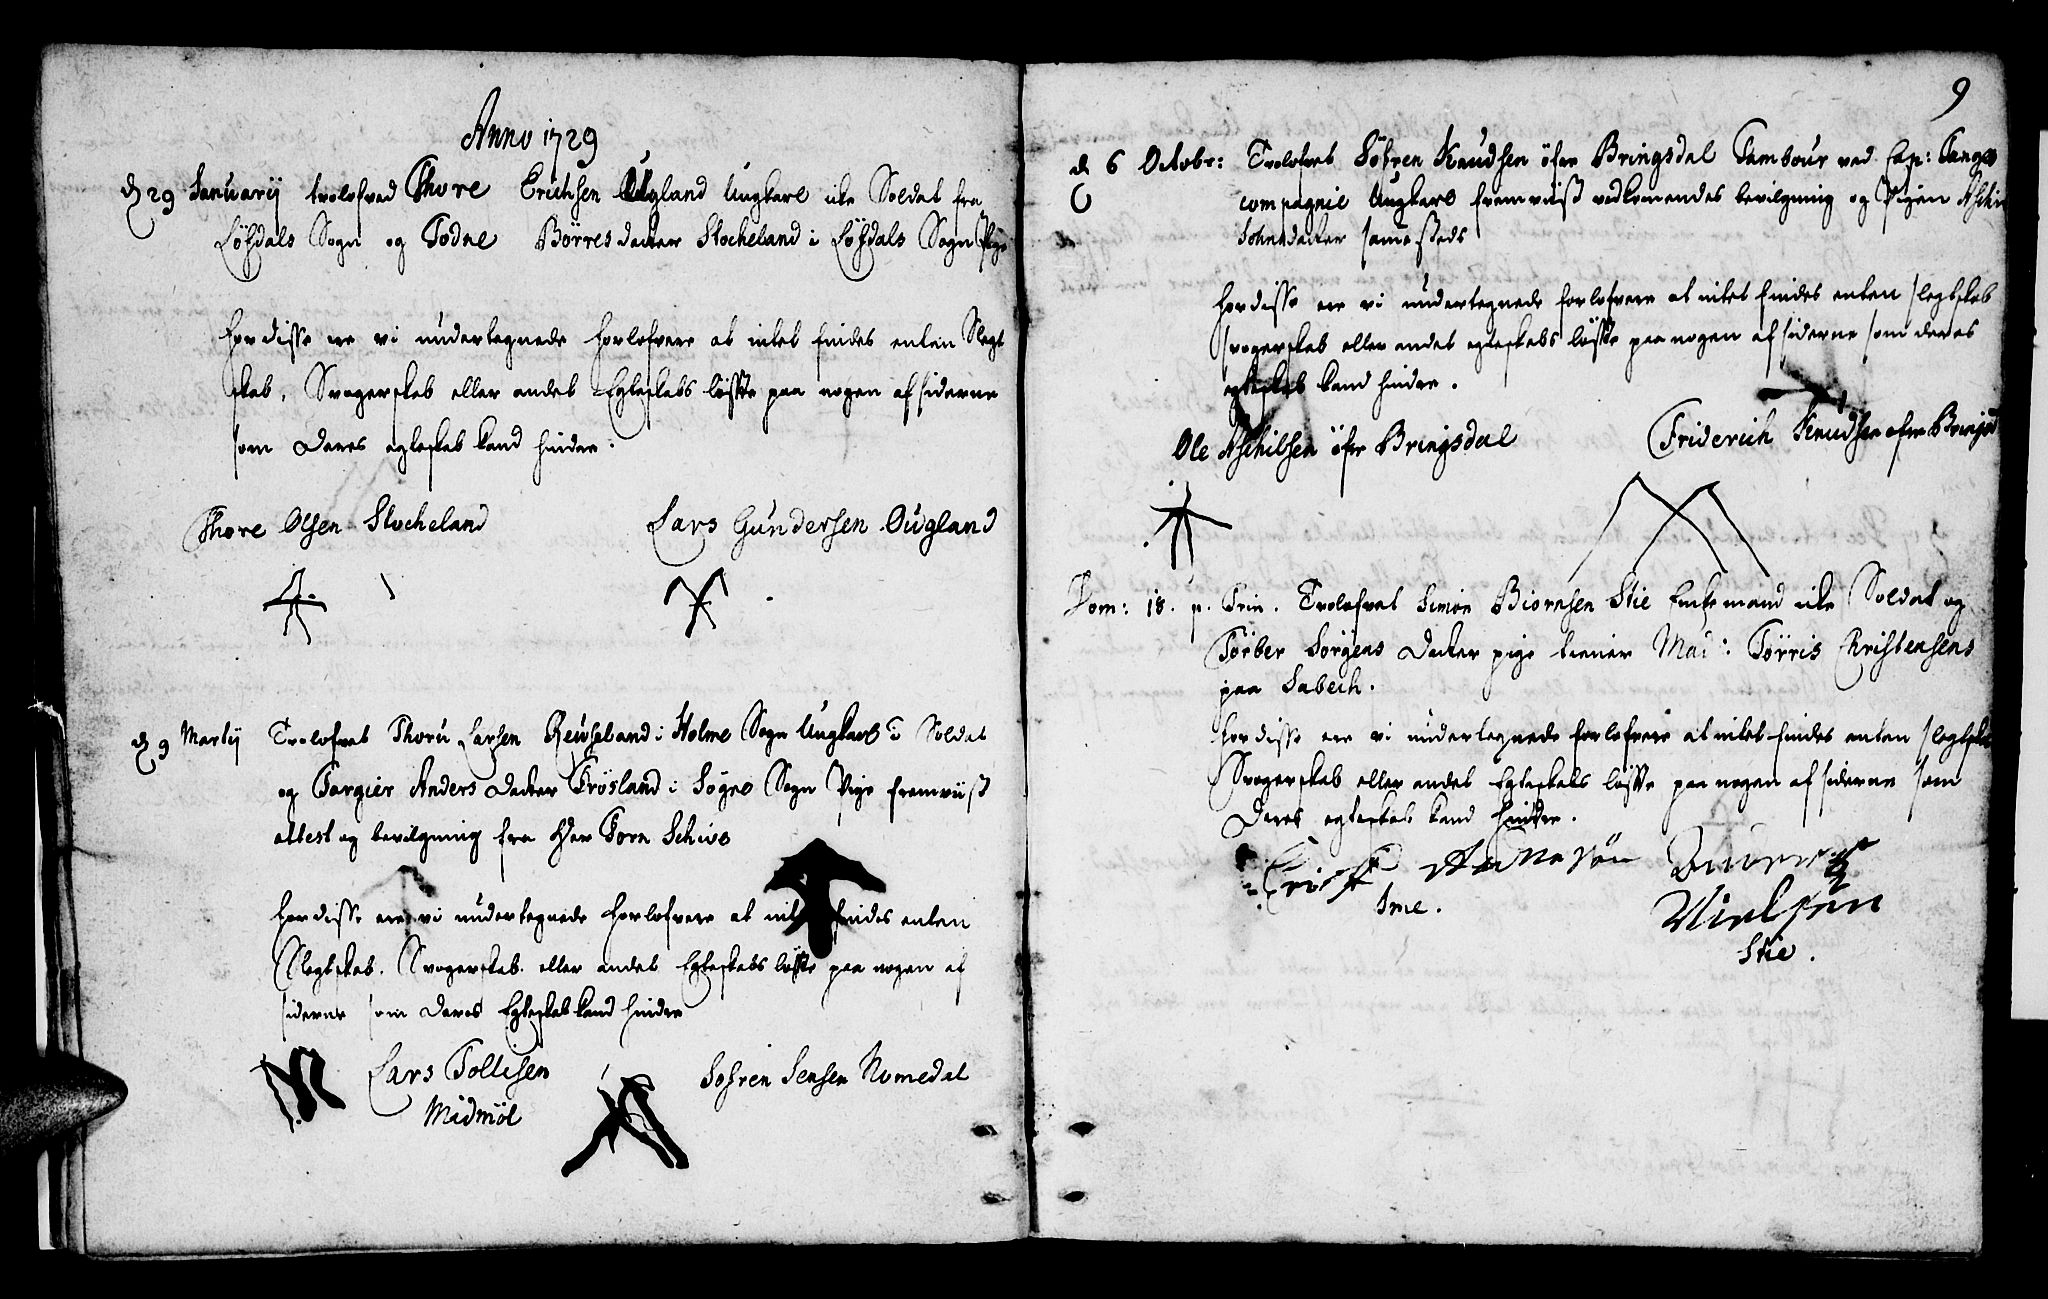 Anno 1729
d 29 Januarij trolofved Thore Erichsen Ougland Ungkarl icke Soldat fra
Löfdals Sogn og Todne Börres datter Stocheland i Löfdals Sogn Pige
for disse ere vi undertegnede forlofvere at intet findes enten Slegt
skab, Svogerskab eller andet Egteskabs löfte paa nogen af siderne
som deres egteskab kand hindre.
Thore Olsen Stocheland
Lars Gundersen Ougland
d 9 Martij Trolofvet Thoru Larsen Reuseland i Holme Sogn Ungkarl i Soldat
og Targier Anders datter Frösland i Sogne Sogn Pige fremviist
attest og bevilgning fra Her Jorn Schive
for disse ere vi undertegnede forlofvere at intet findes enten
Slegtskab. Svogerskab. eller andet Egteskabs löfte paa nogen af
siderne som deres Egteskab kand hindre
Lars Tollisen
Midmöl
Sofren Jensen Romedal
9
d 6 Octobr: Trolofvet Söfren Knudsen öfre Bringsdal Tambour ved Cap: Tanges
compagnie Ungkarl fremviist vedkomendes bevilgning og Pigen
datter same steds
for disse ere vi undertegnede forlofvere at intet findes enten slegtskab
svogerskab eller andet egteskabs löfte paa nogen af siderne som deres
egteskab kand hindre.
Ole Aschilsen öfre Bringsdal
Friderich Knudsen ofre Bringsd
Dom: 18. p. Trin. Trolofvet Simon Biornsen Stie Enkemand icke Soldat og
Törber Jörgens datter pige tiener Mad: Törris Christensens
paa Sabech.
for disse ere vi undertegnede forlofvere at intet findes enten slegtskab
Svogerskab eller andet Egteskabs löfte paa nogen af siderne som
deres egteskab kand hindre.
Nielsen
Ime.
Stie.